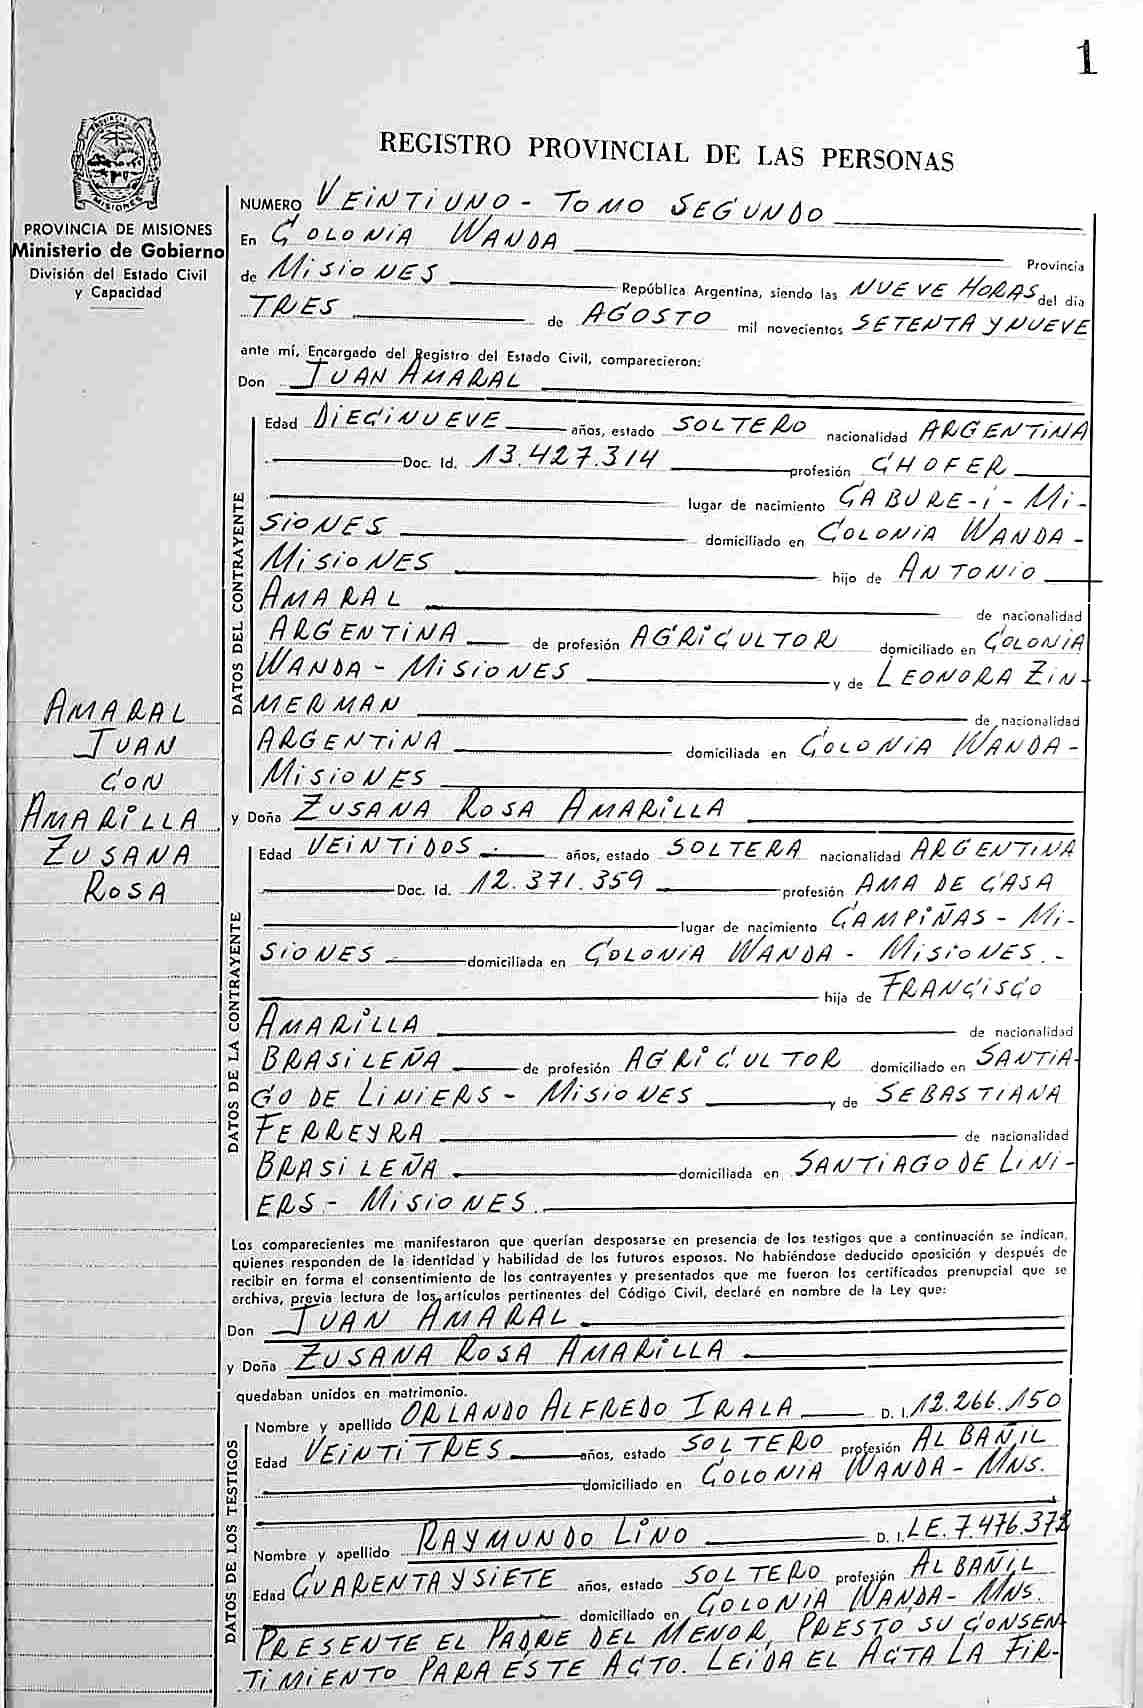 1
REGISTRO PROVINCIAL DE LAS PERSONAS
PROVINCIA DE MISIONES
Ministerio de Gobierno
División del Estado Civil
y Capacidad
AMARAL
JUAN
CON
AMARILLA
ZUSANA
ROSA
NUMERO VEINTIUNO - TOMO SEGUNDO
En COLONIA WANDA Provincia
de MISIONES República Argentina, siendo las NUEVE HORAS del día
TRES de AGOSTO mil novecientos SETENTA Y NUEVE
ante mí, Encargado del Registro del Estado Civil, comparecieron:
Don JUAN AMARAL
DATOS DEL CONTRAYENTE
Edad DIECINUEVE años, estado SOLTERO nacionalidad ARGENTINA
Doc. Id. 13.427.314 profesión CHOFER
lugar de nacimiento CABURE-Í - MI-
SIONES domiciliado en COLONIA WANDA -
MISIONES hijo de ANTONIO
AMARAL de nacionalidad
ARGENTINA de profesión AGRICULTOR domiciliado en COLONIA
WANDA - MISIONES y de LEONORA ZIN-
MERMAN de nacionalidad
ARGENTINA domiciliada en COLONIA WANDA -
MISIONES
y Doña ZUSANA ROSA AMARILLA
DATOS DE LA CONTRAYENTE
Edad VEINTIDOS.- años, estado SOLTERA nacionalidad ARGENTINA
Doc. Id. 12.371.359 profesión AMA DE CASA
lugar de nacimiento CAMPIÑAS - MI-
SIONES domiciliada en COLONIA WANDA - MISIONES.-
hija de FRANCISCO
AMARILLA de nacionalidad
BRASILEÑA de profesión AGRICULTOR domiciliado en SANTIA-
GO DE LINIERS - MISIONES y de SEBASTIANA
FERREYRA de nacionalidad
BRASILEÑA domiciliada en SANTIAGO DE LINI-
ERS - MISIONES.
Los comparecientes me manifestaron que querían desposarse en presencia de los testigos que a continuación se indican,
quienes responden de la identidad y habilidad de los futuros esposos. No habiéndose deducido oposición y después de
recibir en forma el consentimiento de los contrayentes y presentados que me fueron los certificados prenupcial que se
archiva, previa lectura de los artículos pertinentes del Código Civil, declaré en nombre de la Ley que:
Don JUAN AMARAL
y Doña ZUSANA ROSA AMARILLA
quedaban unidos en matrimonio.
DATOS DE LOS TESTIGOS
Nombre y apellido ORLANDO ALFREDO IRALA D. I. 12.266.150
Edad VEINTITRES años, estado SOLTERO profesión ALBAÑIL
domiciliado en COLONIA WANDA - MNS.
Nombre y apellido RAYMUNDO LINO D. I. LE. 7.476.372
Edad CUARENTA Y SIETE años, estado SOLTERO profesión ALBAÑIL
domiciliado en COLONIA WANDA - MNS.
PRESENTE EL PADRE DEL MENOR, PRESTO SU CONSEN-
TIMIENTO PARA ESTE ACTO. LEIDA EL ACTA LA FIR-